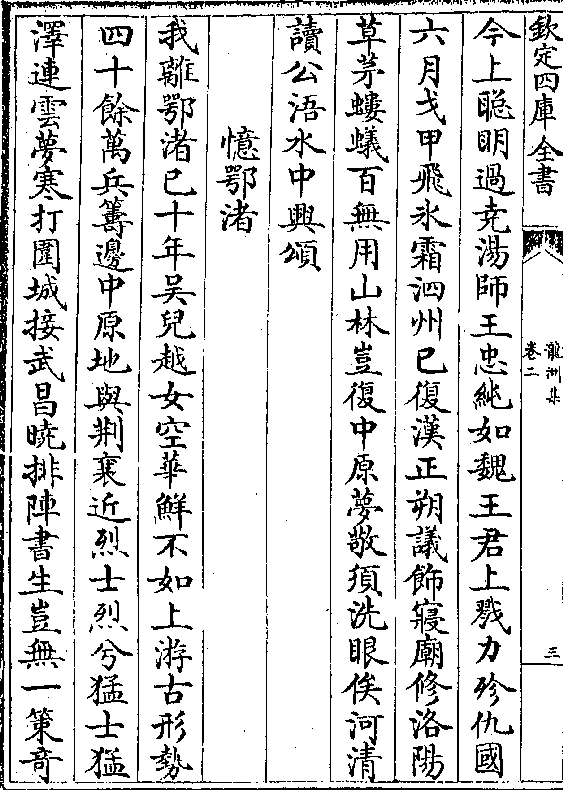 欽定四庫全書
龍洲集
卷二
三
今上聰明過堯湯師王忠純如魏王君上戮力殄仇國
六月戈甲飛氷霜泗州已復漢正朔議飾寢廟修洛陽
草茅螻蟻百無用山林豈復中原夢敬須洗眼俟河清
讀公浯水中興頌
憶鄂渚
我離鄂渚已十年吳兒越女空華鮮不如上游古形勢
四十餘萬兵籌邊中原地與荆襄近烈士烈兮猛士猛
澤連雲夢寒打圍城接武昌曉排陣書生豈無一策奇